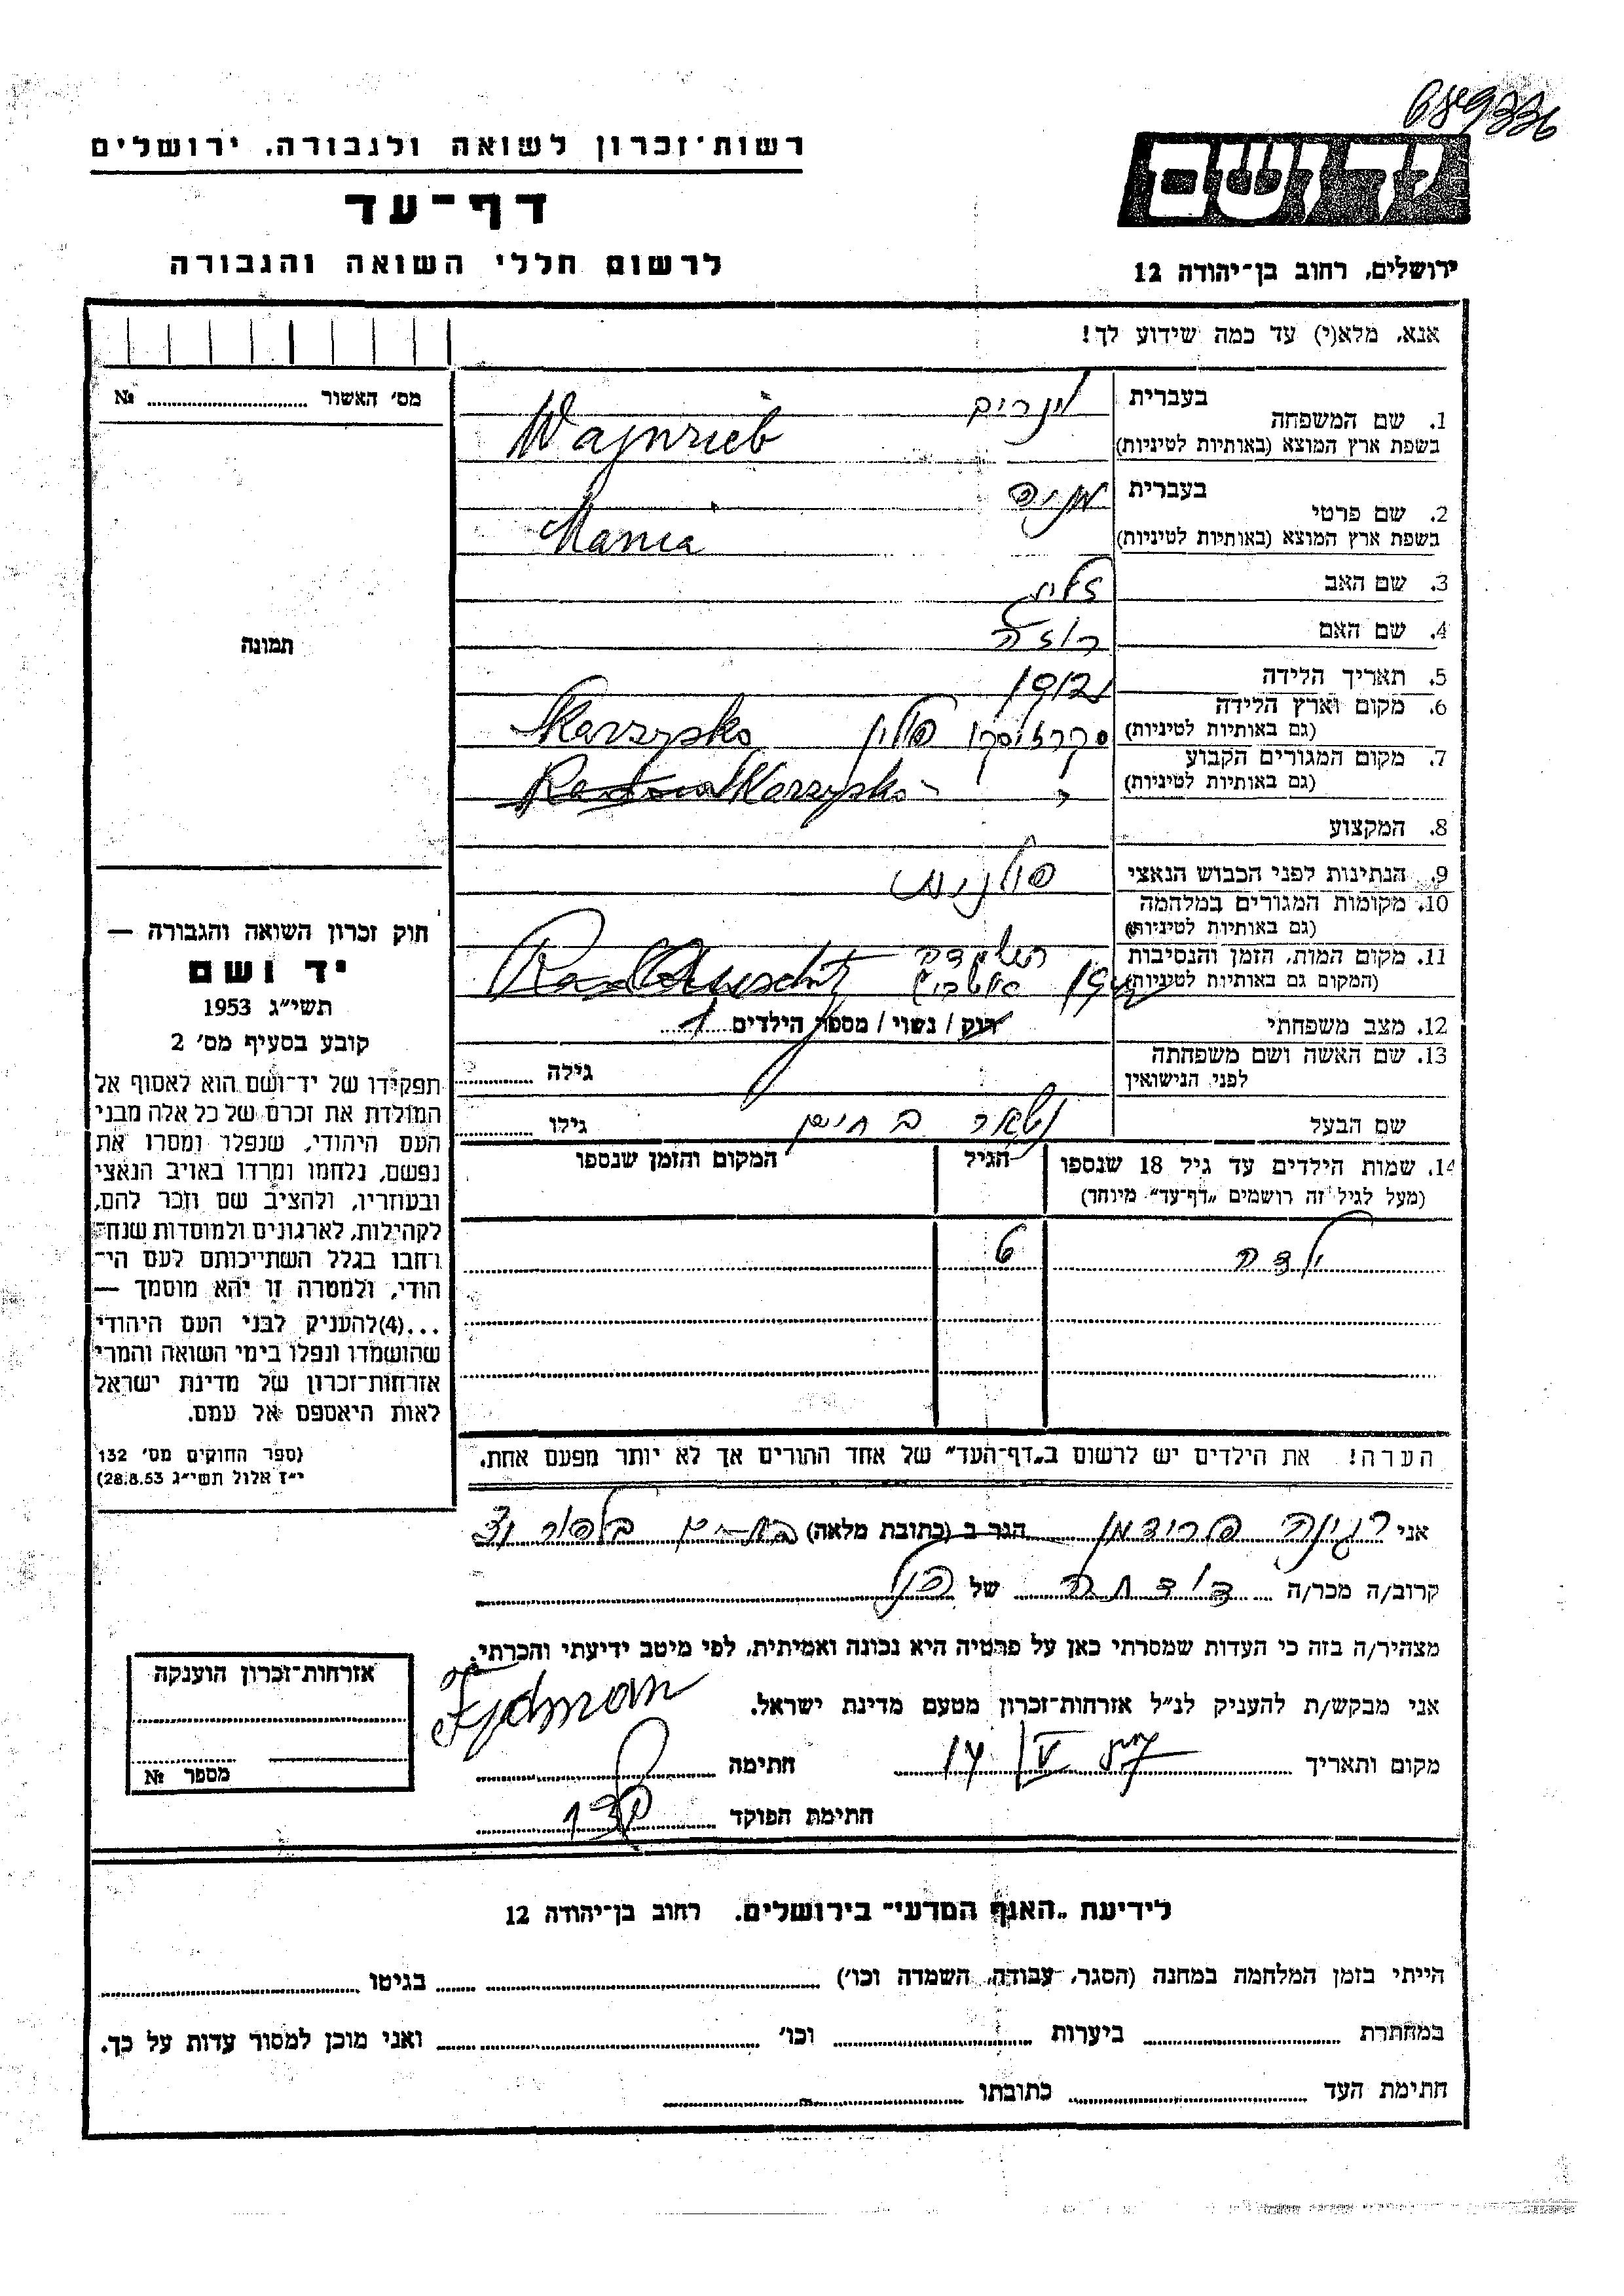 רשות־זכרון לשואה ולגבורה, ירושלים
דף־עד
לרשום חללי השואה והגבורה
ירושלים, רחוב בן־יהודה 12
אנא, מלא(י) עד כמה שידוע לך!
מס׳ האשור № 
תמונה
חוק זכרון השואה והגבורה —
יד ושם
תשי״ג 1953
קובע בסעיף מס׳ 2
תפקידו של יד־ושם הוא לאסוף אל
המולדת את זכרם של כל אלה מבני
העם היהודי, שנפלו ומסרו את
נפשם, נלחמו ומרדו באויב הנאצי
ובעוזריו, ולהציב שם וזכר להם,
לקהילות, לארגונים ולמוסדות שנח־
רחבו בגלל השתייכותם לעם הי־
הודי, ולמטרה זו יהא מוסמך —
...(4)להעניק לבני העם היהודי
שהושמדו ונפלו בימי השואה והמרי
אזרחות־זכרון של מדינת ישראל
לאות היאספם אל עמם.
(ספר החוקים מס׳ 132
י״ז אלול תשי״ג 28.8.53)
1. שם המשפחה בעברית
בשפת ארץ המוצא (באותיות לטיניות) Wajnrieb
2. שם פרטי בעברית מניה
בשפת ארץ המוצא (באותיות לטיניות) Mania
3. שם האב זליג
4. שם האם רוזה
5. תאריך הלידה
6. מקום וארץ הלידה
(גם באותיות לטיניות) סקרז'יסקו פולין Skarzysko
7. מקום המגורים הקבוע
(גם באותיות לטיניות) " Skarzysko
8. המקצוע
9. הנתינות לפני הכבוש הנאצי פולנית
10. מקומות המגורים במלחמה
(גם באותיות לטיניות)
11. מקום המות, הזמן והנסיבות
(המקום גם באותיות לטיניות) הושמדה
12. מצב משפחתי רוק / נשוי / מספר הילדים 1
13. שם האשה ושם משפחתה
לפני הנישואין גילה
שם הבעל גילו
14. שמות הילדים עד גיל 18 שנספו הגיל המקום והזמן שנספו
(מעל לגיל זה רושמים „דף־עד״ מיוחד)
ילדה 6
הערה! את הילדים יש לרשום ב„דף־העד״ של אחד ההורים אך לא יותר מפעם אחת.
אני רגינה פרידמן הגר ב (כתובת מלאה)
קרוב/ה מכר/ה דודתה של הנ"ל
מצהיר/ה בזה כי העדות שמסרתי כאן על פרטיה היא נכונה ואמיתית, לפי מיטב ידיעתי והכרתי.
אני מבקש/ת להעניק לנ״ל אזרחות־זכרון מטעם מדינת ישראל.
מקום ותאריך 14/V 57 חתימה
חתימת הפוקד
אזרחות־זכרון הוענקה
מספר №
לידיעת „האגף המדעי״ בירושלים, רחוב בן־יהודה 12
הייתי בזמן המלחמה במחנה (הסגר, עבודה, השמדה וכו׳) בגיטו
במחתרת ביערות וכו׳ ואני מוכן למסור עדות על כך.
חתימת העד כתובתו